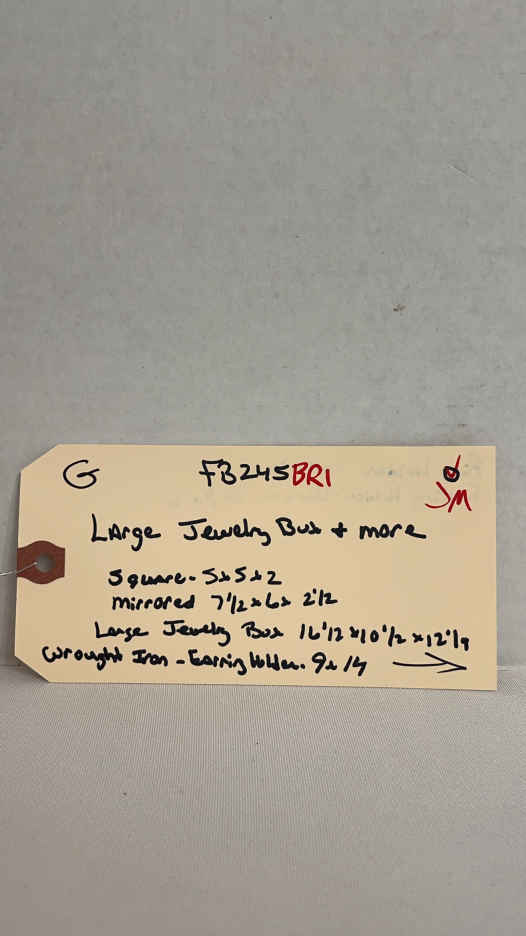 G FB245BR1
JM
Large Jewelry Box + more
Square - 5x5x2
mirrored 7 1/2 x 6 x 2 1/2
Large Jewelry Box 16 1/2 x 10 1/2 x 12 1/9
Wrought Iron - Earring Holder. 9x14 →